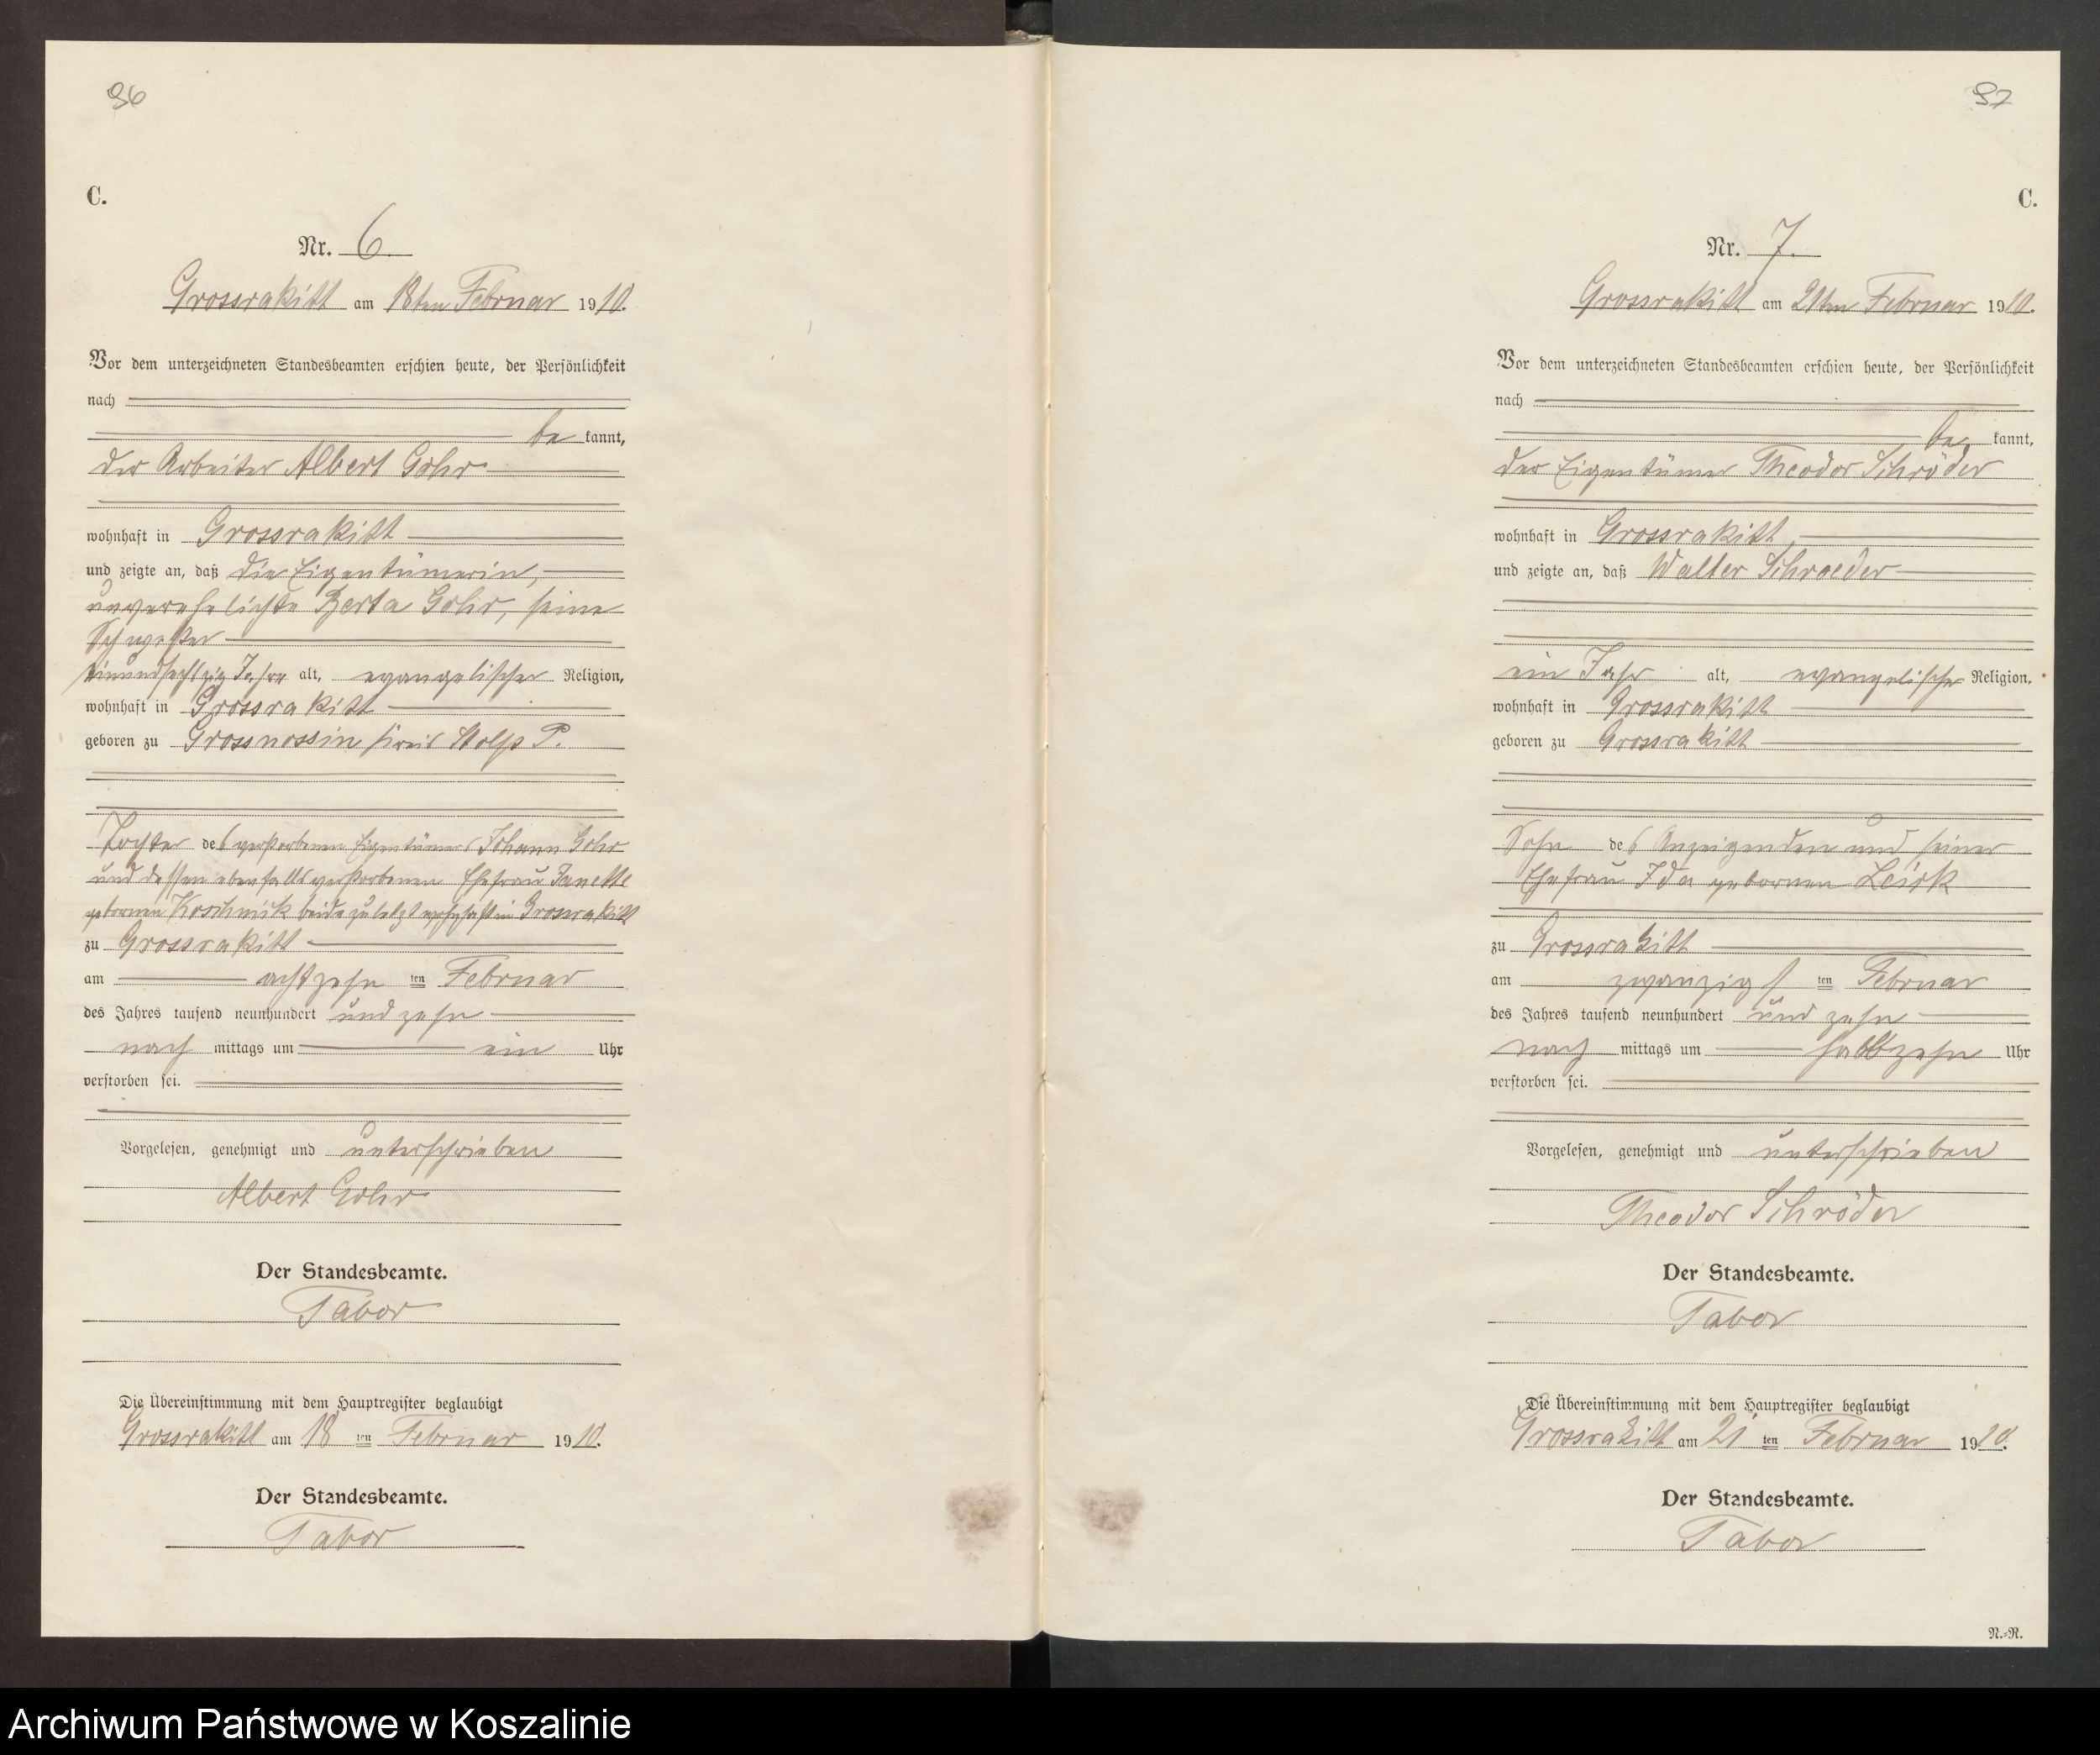 96
C.
Nr. 6.
Grossrakitt am 18ten Februar 1910.
Vor dem unterzeichneten Standesbeamten erschien heute, der Persönlichkeit
nach
be kannt,
der Arbeiter Albert Gohr
wohnhaft in Grossrakitt
und zeigte an, daß die Eigentümerin,
unverehelichte Berta Gohr, seine
Schwester
einundsechzig Jahre alt, evangelischer Religion,
wohnhaft in Grossrakitt
geboren zu Grossnossin Kreis Stolp P.
Tochter des verstorbenen Eigentümers Johann Gohr
und dessen ebenfalls verstorbenen Ehefrau Janette
gebornen Koschnick beide zuletzt wohnhaft in Grossrakitt
zu Grossrakitt
am achtzehn ten Februar
des Jahres tausend neunhundert und zehn
nach mittags um ein Uhr
verstorben sei.
Vorgelesen, genehmigt und unterschrieben
Albert Gohr
Der Standesbeamte.
Tabor
Die Übereinstimmung mit dem Hauptregister beglaubigt
Grossrakitt am 18 ten Februar 1910.
Der Standesbeamte.
Tabor
97
C.
Nr. 7.
Grossrakitt am 21ten Februar 1910.
Vor dem unterzeichneten Standesbeamten erschien heute, der Persönlichkeit
nach
be kannt,
der Eigentümer Theodor Schröder
wohnhaft in Grossrakitt
und zeigte an, daß Walter Schroeder
ein Jahr alt, evangelischer Religion,
wohnhaft in Grossrakitt
geboren zu Grossrakitt
Sohn des Anzeigenden und seiner
Ehefrau Ida gebornen
zu Grossrakitt
am zwanzigs ten Februar
des Jahres tausend neunhundert und zehn
nach mittags um halbzehn Uhr
verstorben sei.
Vorgelesen, genehmigt und unterschrieben
Theodor Schröder
Der Standesbeamte.
Tabor
Die Übereinstimmung mit dem Hauptregister beglaubigt
Grossrakitt am 21 ten Februar 1910.
Der Standesbeamte.
Tabor
N.-R.
Archiwum Państwowe w Koszalinie